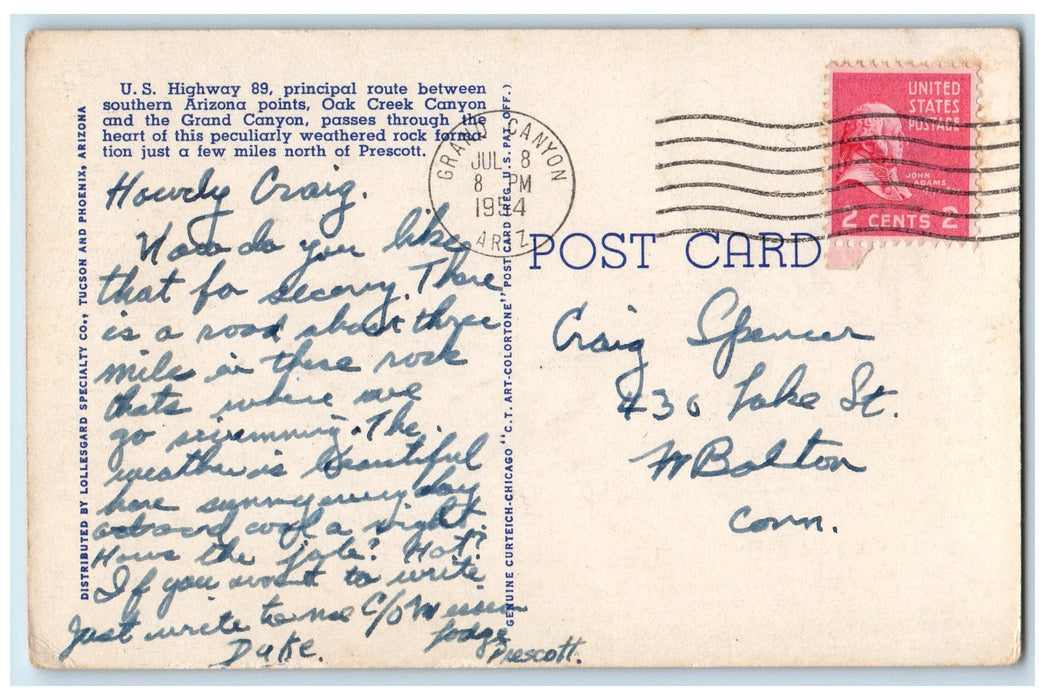 U. S. Highway 89, principal route between
southern Arizona points, Oak Creek Canyon
and the Grand Canyon, passes through the
heart of this peculiarly weathered rock forma-
tion just a few miles north of Prescott.
DISTRIBUTED BY LOLLESGARD SPECIALTY CO., TUCSON AND PHOENIX, ARIZONA
Howdy Craig.
How do you like
that for scenery. There
is a road about three
miles in these rock
thats where we
go swimming. The
weather is beautiful
here sunny every day
and cool a night.
Hows the job? Hot?
If you want to write
Just write to me C/O Mission
Lodge
Prescott.
Duke.
GENUINE CURTEICH-CHICAGO "C. T. ART-COLORTONE" POST CARD (REG. U. S. PAT. OFF.)
GRAND CANYON
JUL 8
8 PM
1954
ARIZ.
UNITED
STATES
POSTAGE
JOHN
ADAMS
2 CENTS 2
POST CARD
Craig Spencer
230 Lake St.
Bolton
Conn.